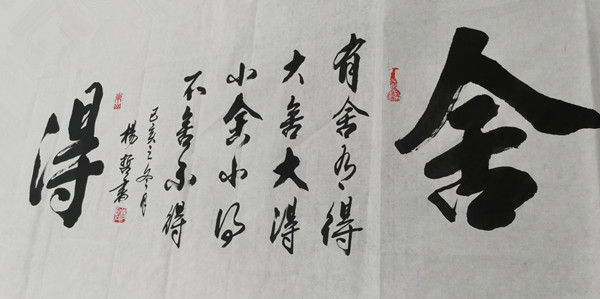 舍
有舍有得
大舍大得
小舍小得
不舍不得
得
己亥之冬月
杨哲书